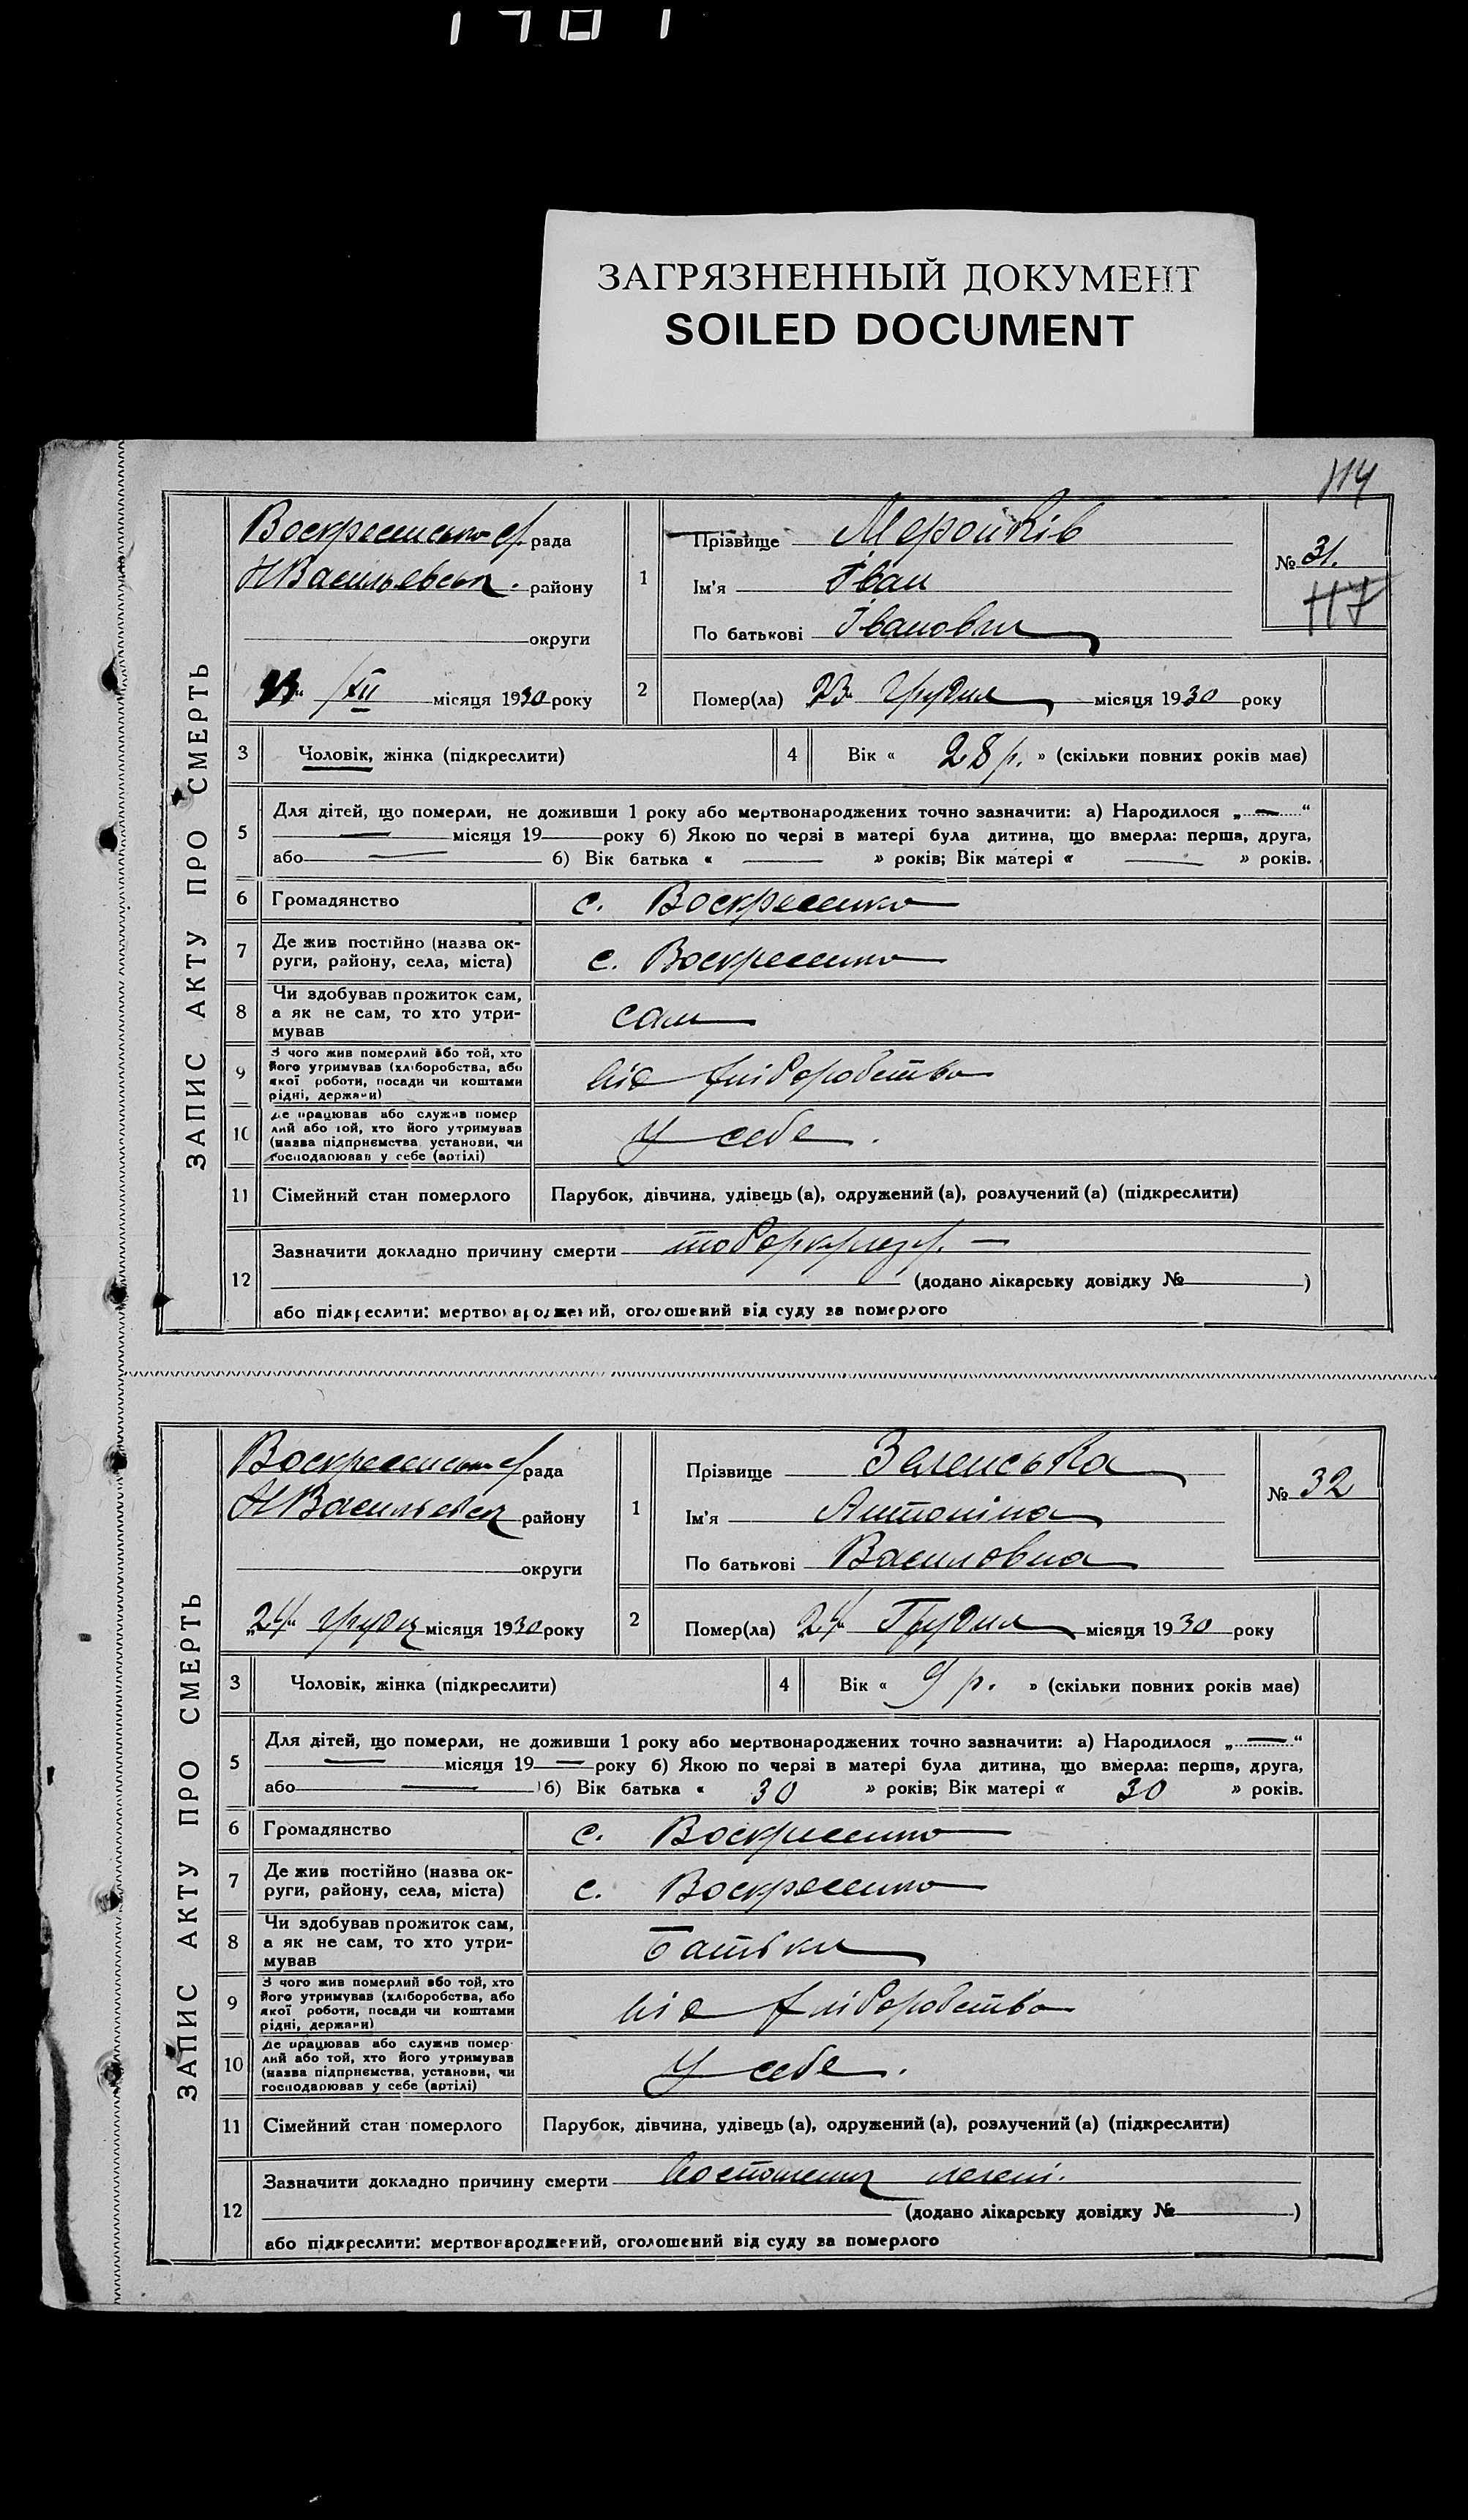 ЗАГРЯЗНЕННЫЙ ДОКУМЕНТ
SOILED DOCUMENT
114
ЗАПИС АКТУ ПРО СМЕРТЬ
рада
району
округи
/XII місяця 1930 року
1
Прізвище
Ім'я Іван
По батькові Іванович
№ 31.
117
2
Помер(ла) 23 Грудня місяця 1930 року
3 Чоловік, жінка (підкреслити)
4 Вік « 28 р. » (скільки повних років має)
5 Для дітей, що померли, не доживши 1 року або мертвонароджених точно зазначити: а) Народилося „ — “
— місяця 19 року б) Якою по черзі в матері була дитина, що вмерла: перша, друга,
або — б) Вік батька « — » років; Вік матері « — » років.
6 Громадянство с. Воскресенка
7 Де жив постійно (назва ок-
руги, району, села, міста) с. Воскресенка
8 Чи здобував прожиток сам,
а як не сам, то хто утри-
мував сам
9 З чого жив померлий або той, хто
його утримував (хліборобства, або
якої роботи, посади чи коштами
рідні, держави) від хліборобства
10 Де працював або служив помер
лий або той, хто його утримував
(назва підприємства, установи, чи
господарював у себе (артілі) У себе.
11 Сімейний стан померлого Парубок, дівчина, удівець (а), одружений (а), розлучений (а) (підкреслити)
12 Зазначити докладно причину смерти
(додано лікарську довідку № )
або підкреслити: мертвонароджений, оголошений від суду за померлого
ЗАПИС АКТУ ПРО СМЕРТЬ
рада
району
округи
„24“ місяця 1930 року
1
Прізвище Зеленська
Ім'я Антоніна
По батькові Василовна
№ 32
2
Помер(ла) 24 Грудня місяця 1930 року
3 Чоловік, жінка (підкреслити)
4 Вік « 9 р. » (скільки повних років має)
5 Для дітей, що померли, не доживши 1 року або мертвонароджених точно зазначити: а) Народилося „ — “
— місяця 19 — року б) Якою по черзі в матері була дитина, що вмерла: перша, друга,
або — б) Вік батька « 30 » років; Вік матері « 30 » років.
6 Громадянство с. Воскресенка
7 Де жив постійно (назва ок-
руги, району, села, міста) с. Воскресенка
8 Чи здобував прожиток сам,
а як не сам, то хто утри-
мував Батьки
9 З чого жив померлий або той, хто
його утримував (хліборобства, або
якої роботи, посади чи коштами
рідні, держави) від хліборобства
10 Де працював або служив помер-
лий або той, хто його утримував
(назва підприємства, установи, чи
господарював у себе (артілі) У себе.
11 Сімейний стан померлого Парубок, дівчина, удівець (а), одружений (а), розлучений (а) (підкреслити)
12 Зазначити докладно причину смерти легені.
(додано лікарську довідку № )
або підкреслити: мертвонароджений, оголошений від суду за померлого